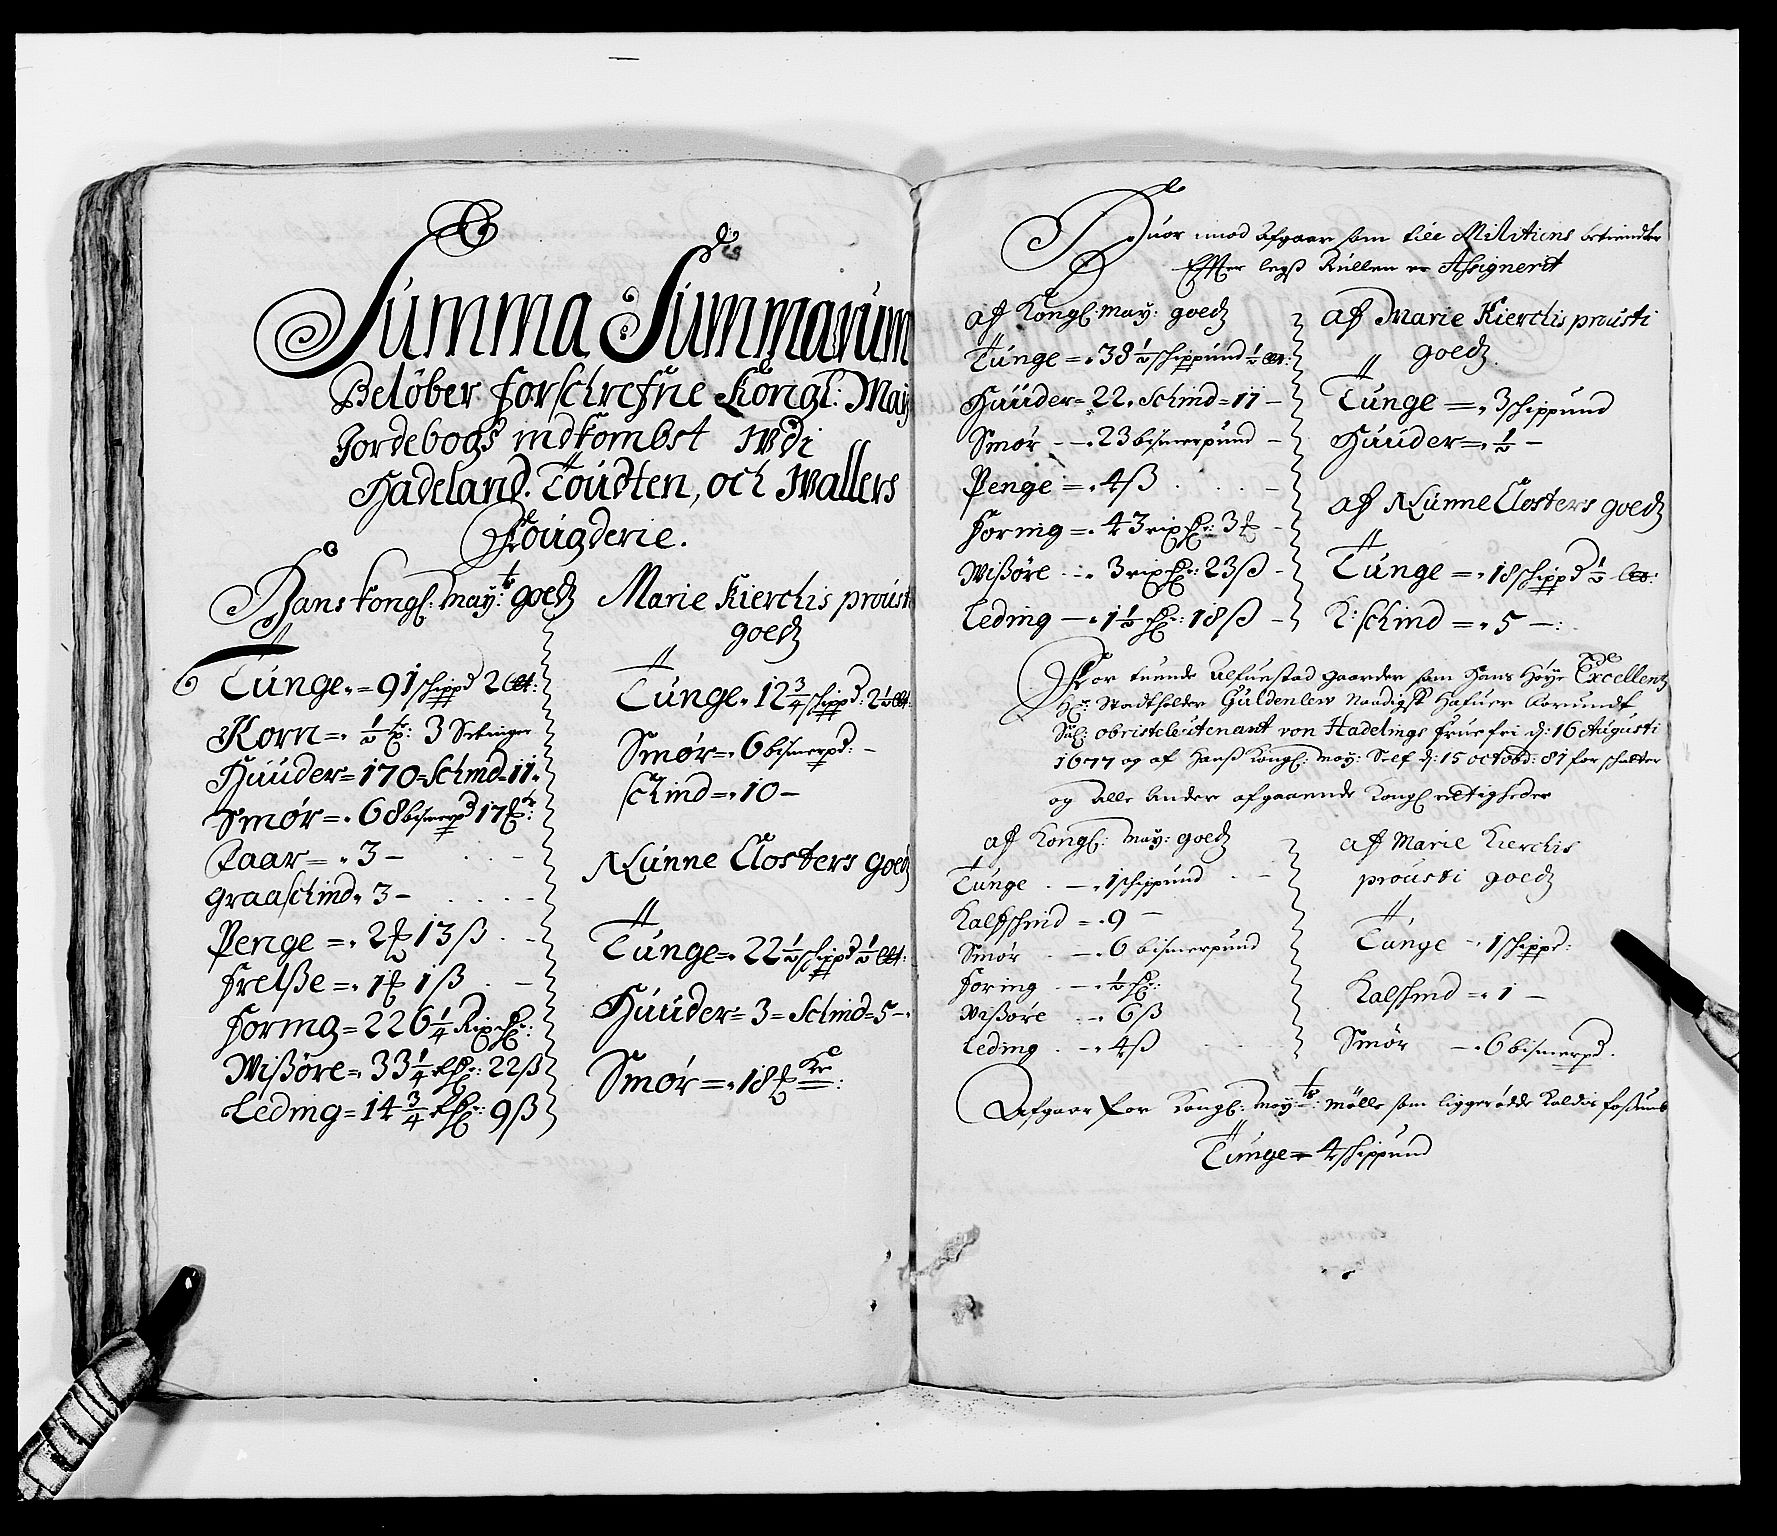 Summa Summarum
Belöber forschrefne Kongl: May
Jordebogs indkombst Wdi
Hadeland. Toudten, och Wallers
Fougderie.
Hans Kongl: May:ts goedtz
Tunge = 91 schippd 2 let:
Korn = ½ tp: 3 Settinger
Huuder = 170 = Schind = 11
Smør = 68 bismerpd 17
Faar = 3 —
graaschind = 3 —
Penge = 2 13 ß
Frelsße = 1 1 ß
Foring = 226¼ Rixdr:
Wißøre = 33¼ rdr: 22 ß
Leding = 14¾ rdr: 9 ß
Marie Kierchis proust
goedtz
Tunge = 12¾ schippd: 2½ let:
Smør = 6 bismerpd: —
schind = 10 —
Nunne Closters goedtz
Tunge = 22½ schippd ½ let:
Huuder = 3 = Schind = 5 —
Smør = 18
Huor imod afgaar som till Militiens betiendter
Effter legß Rullen er Assignerit
af Kongl: may: goedtz
Tunge = 38½ schippund ½ let:
Huuder = 22. Schind = 11 —
Smør — 23 bismerpund —
Penge = 4 ß
Foring = 43 rixdr: 3
Wißøre — 3 rixdr: 23 ß —
Leding — 1½ dr: 18 ß —
af Marie Kierchis prousti
goedtz
Tunge = 3 schippund
Huuder = ½ —
af Nunne Closters goedtz
Tunge = 18 schippd ½ let:
K: schind = 5 —:
For tuende Alfuestad gaarder som Hans Høye Excellentz
Hr: Stadtholder Guldenlew Naadigst hafuer forundt
Sal: obristeleutenant von Hadelings Frue fri d: 16 Augusti
1677 og af Hans Kongl: may: Self d: 15 octobr: 81 for schatter
og Alle Ander afgaaende Kongl rettigheder
af Kongl: may: goedtz
Tunge — 1 schippund
Kalfschind = 9 —
Smør — 6 bismerpund
Foring — ½ dr:
Wißøre — 6 ß
Leding — 4 ß
af Marie Kierchis
prousti goedtz
Tunge — 1 schippd:
Kalfschind = 1 —
Smør — 6 bismerpd.
Afgaar for Kongl: May:ts Mølle som ligger øde Kaldis
Tunge = 4 schippund